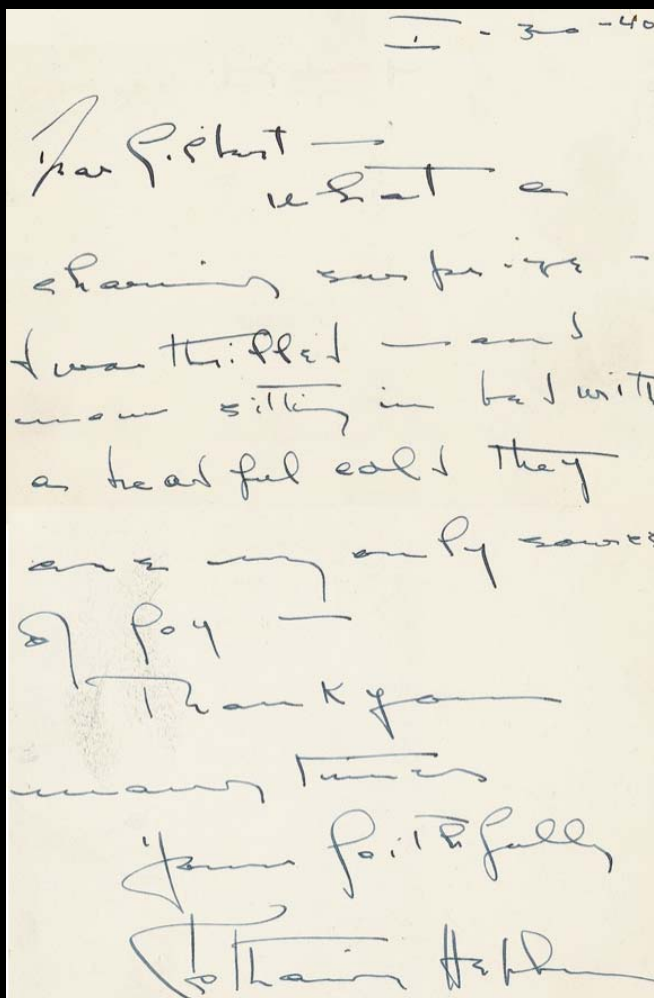 I - 30 - 40
Dear Gilbert —
what a
charming surprize -
I was thrilled — and
now sitting in bed with
a dreadful cold they
are my only source
of joy —
Thank you
many times
Yours faithfully
Katharine Hepburn